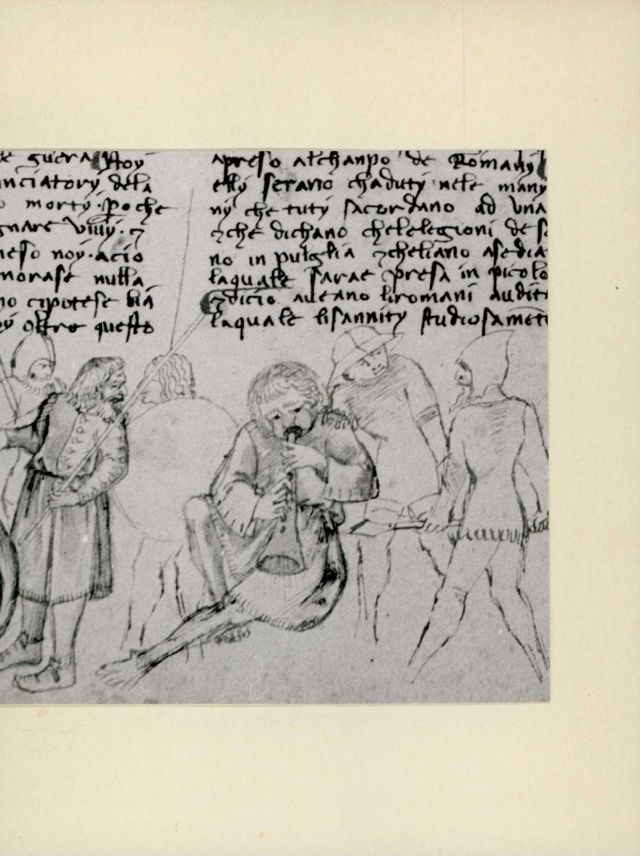 guera Noy
nciatory dela
morty. p̱oche
gnare viuy. ⁊
neso noy. acio
morase nulla
no cipotese bia
oltro questo
apreso alchanpo de Romany
elly serano chaduty nele many
ny che tuty sacordano ad vna
⁊che dichano chelelegioni de s
no in pulglia ⁊cheliano asedia
laquale sarae presa in picolo
⁊dicio aueano liromani audit
laquale lisannity studiosamet